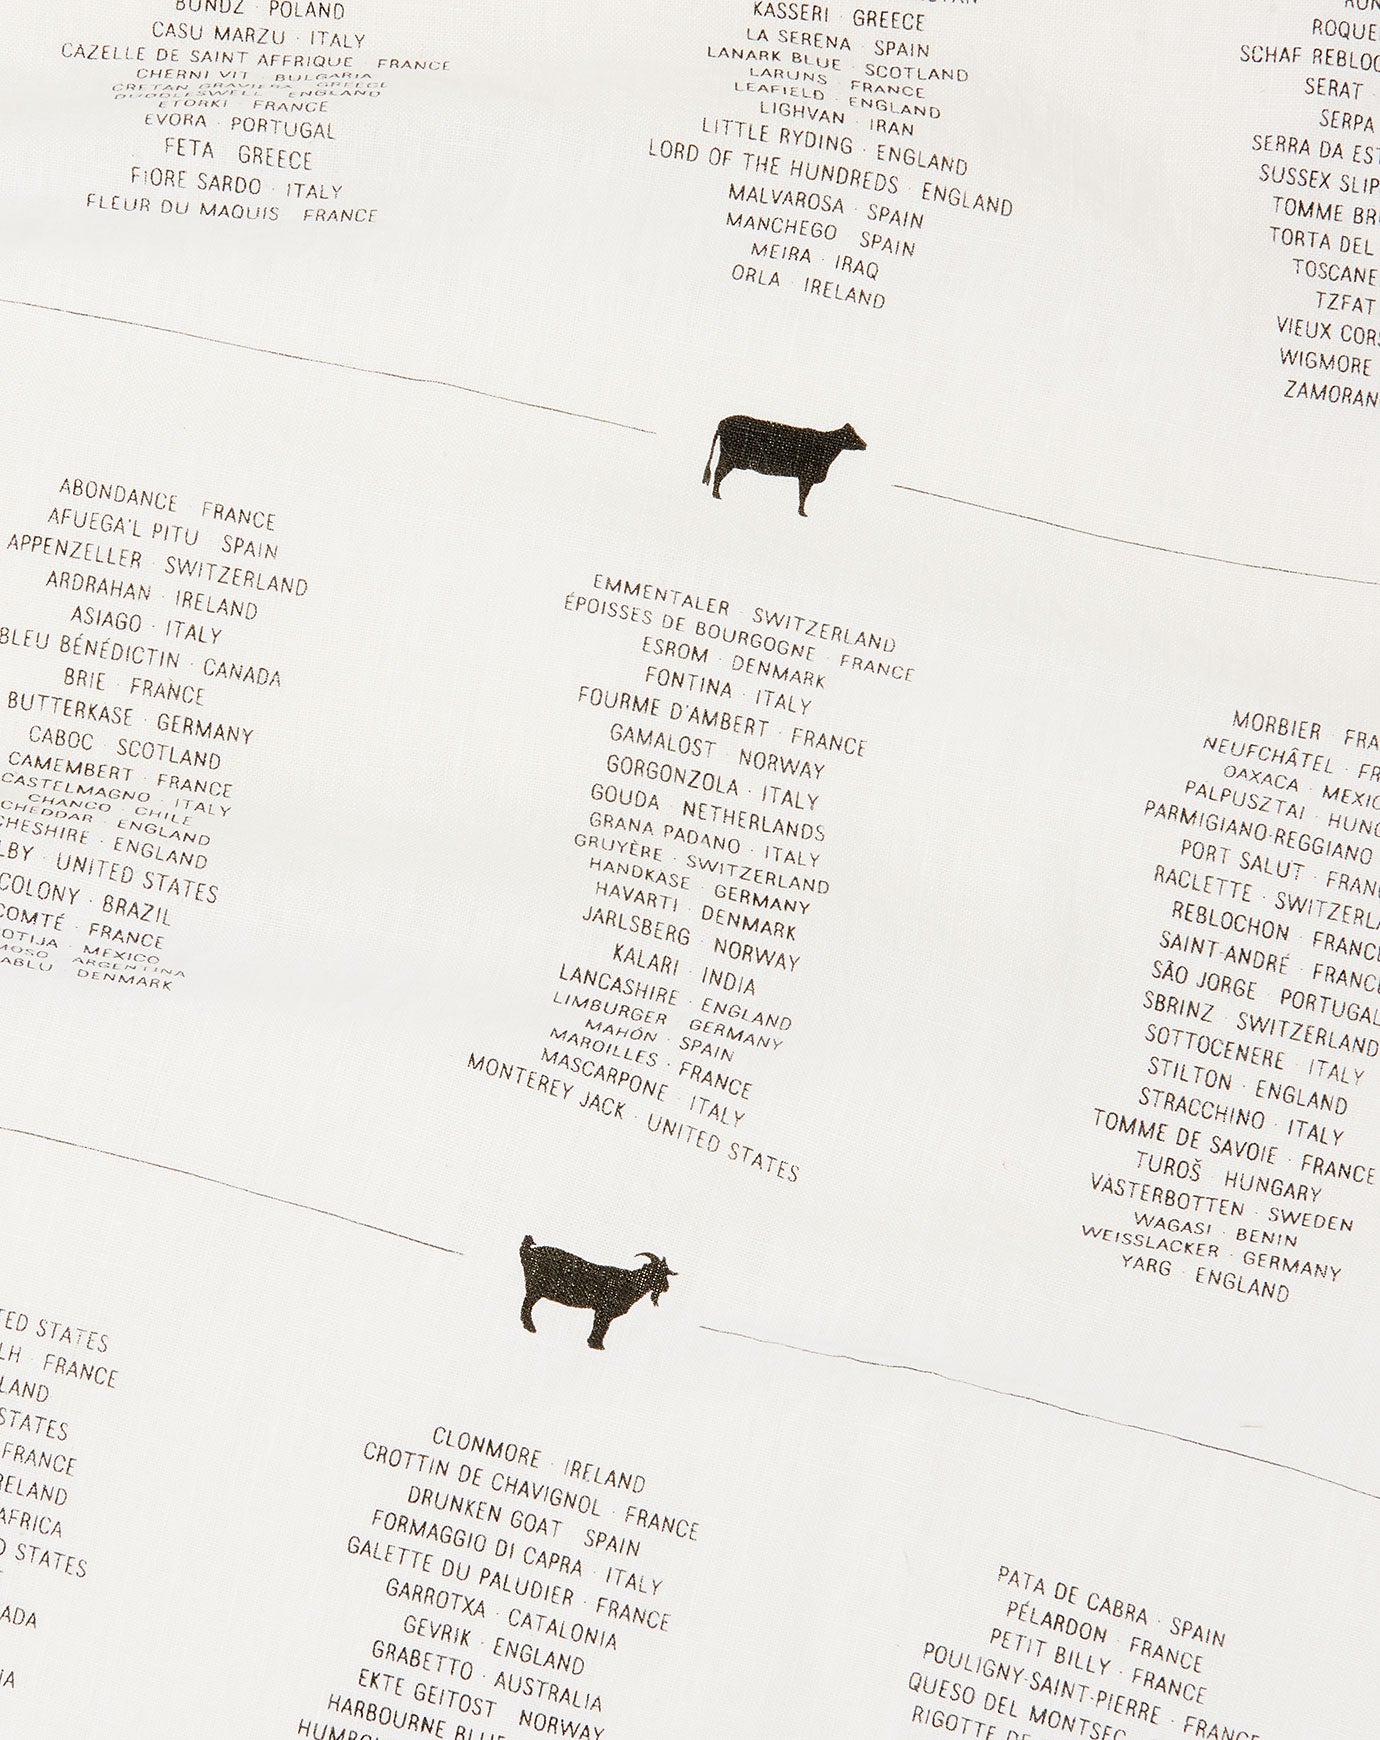 BUNDZ · POLAND
CASU MARZU · ITALY
CAZELLE DE SAINT AFFRIQUE · FRANCE
CHERNI VIT · BULGARIA
CRETAN GRAVIERA · GREECE
DUDDLESWELL · ENGLAND
ETORKI · FRANCE
EVORA · PORTUGAL
FETA GREECE
FIORE SARDO · ITALY
FLEUR DU MAQUIS FRANCE
KASSERI · GREECE
LA SERENA · SPAIN
LANARK BLUE · SCOTLAND
LARUNS · FRANCE
LEAFIELD · ENGLAND
LIGHVAN · IRAN
LITTLE RYDING · ENGLAND
LORD OF THE HUNDREDS · ENGLAND
MALVAROSA · SPAIN
MANCHEGO SPAIN
MEIRA · IRAQ
ORLA · IRELAND
ROQUE
SCHAF REBLOC
SERAT ·
SERPA
SERRA DA EST
SUSSEX SLIP
TOMME BR
TORTA DEL
TOSCANE
TZFAT
VIEUX CORS
WIGMORE
ZAMORAN
ABONDANCE FRANCE
AFUEGA'L PITU SPAIN
APPENZELLER · SWITZERLAND
ARDRAHAN · IRELAND
ASIAGO · ITALY
BLEU BÉNÉDICTIN · CANADA
BRIE · FRANCE
BUTTERKASE · GERMANY
CABOC · SCOTLAND
CAMEMBERT · FRANCE
CASTELMAGNO · ITALY
CHANCO · CHILE
CHEDDAR · ENGLAND
CHESHIRE · ENGLAND
LBY · UNITED STATES
COLONY · BRAZIL
COMTÉ · FRANCE
OTIJA · MEXICO
MOSO ARGENTINA
ABLU DENMARK
EMMENTALER · SWITZERLAND
ÉPOISSES DE BOURGOGNE · FRANCE
ESROM · DENMARK
FONTINA · ITALY
FOURME D'AMBERT · FRANCE
GAMALOST · NORWAY
GORGONZOLA · ITALY
GOUDA NETHERLANDS
GRANA PADANO · ITALY
GRUYÈRE · SWITZERLAND
HANDKASE · GERMANY
HAVARTI · DENMARK
JARLSBERG · NORWAY
KALARI · INDIA
LANCASHIRE · ENGLAND
LIMBURGER GERMANY
MAHÓN · SPAIN
MAROILLES · FRANCE
MASCARPONE · ITALY
MONTEREY JACK · UNITED STATES
MORBIER · FRA
NEUFCHÂTEL · FR
OAXACA · MEXIC
PALPUSZTAI · HUNG
PARMIGIANO-REGGIANO
PORT SALUT · FRAN
RACLETTE · SWITZERLA
REBLOCHON · FRANCE
SAINT-ANDRÉ · FRANCE
SÃO JORGE PORTUGAL
SBRINZ · SWITZERLAND
SOTTOCENERE · ITALY
STILTON · ENGLAND
STRACCHINO · ITALY
TOMME DE SAVOIE · FRANCE
TUROŠ HUNGARY
VÄSTERBOTTEN · SWEDEN
WAGASI · BENIN
WEISSLACKER · GERMANY
YARG · ENGLAND
TED STATES
LH · FRANCE
LAND
STATES
FRANCE
RELAND
AFRICA
D STATES
ADA
IA
CLONMORE · IRELAND
CROTTIN DE CHAVIGNOL · FRANCE
DRUNKEN GOAT SPAIN
FORMAGGIO DI CAPRA · ITALY
GALETTE DU PALUDIER · FRANCE
GARROTXA · CATALONIA
GEVRIK · ENGLAND
GRABETTO · AUSTRALIA
EKTE GEITOST NORWAY
HARBOURNE BLUE
HUMBO
PATA DE CABRA · SPAIN
PÉLARDON · FRANCE
PETIT BILLY · FRANCE
POULIGNY-SAINT-PIERRE · FRANCE
QUESO DEL MONTSEC
RIGOTTE DE